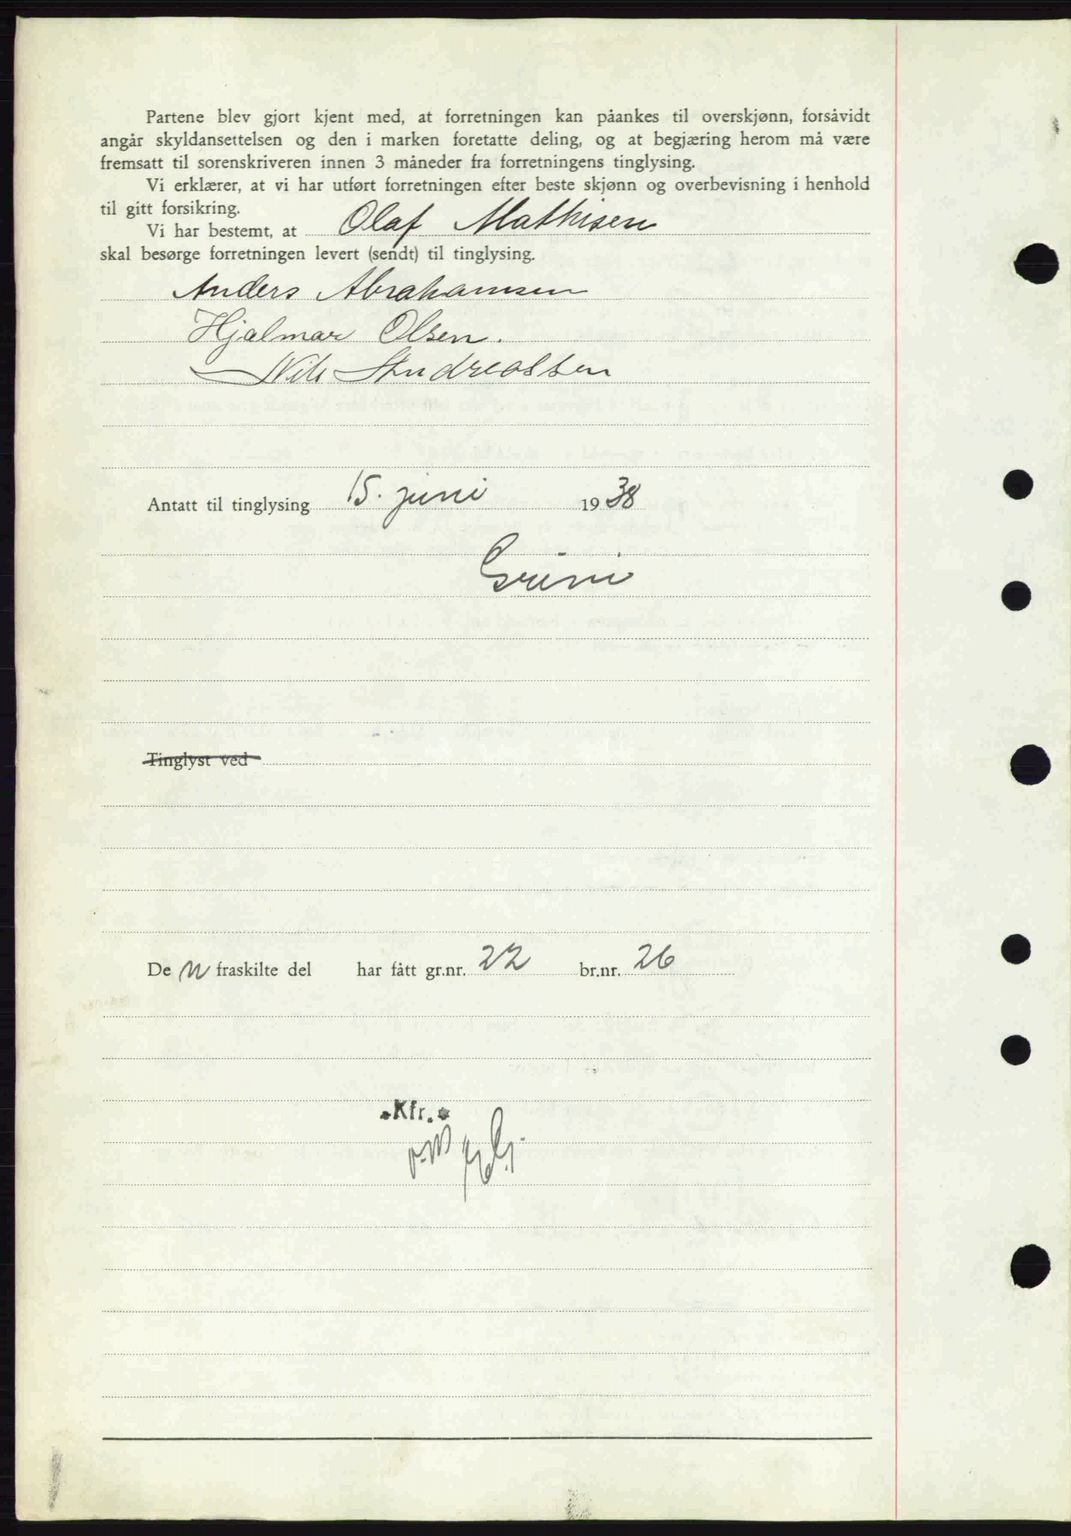 Partene blev gjort kjent med, at forretningen kan påankes til overskjønn, forsåvidt
angår skyldansettelsen og den i marken foretatte deling, og at begjæring herom må være
fremsatt til sorenskriveren innen 3 måneder fra forretningens tinglysing.
Vi erklærer, at vi har utført forretningen efter beste skjønn og overbevisning i henhold
til gitt forsikring.
Vi har bestemt, at Olaf Mathisen
skal besørge forretningen levert (sendt) til tinglysing.
Anders Abrahamsen
Hjalmar Olsen.
Nils Andreassen
Antatt til tinglysing 15. juni 1938
Grini
Tinglyst ved
De n fraskilte del har fått gr.nr. 22 br.nr. 26
Kfr.